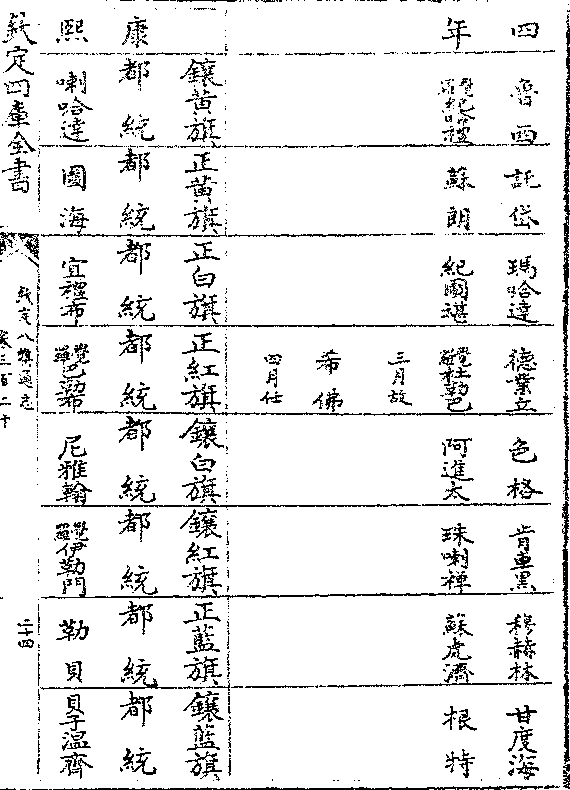 四 魯西 託岱 瑪哈達 德業立 色格 肯車黑 穆赫林 甘度海
年 覺羅紀哈禮 蘇朗 紀圖堪 覺羅杜勒巴 阿進太 珠喇禪 蘇虎濟 根特
三月放
希佛
四月任
鑲黃旗 正黃旗 正白旗 正紅旗 鑲白旗 鑲紅旗 正藍旗 鑲藍旗
康 都統 都統 都統 都統 都統 都統 都統 都統
熙 喇哈達 圖海 宜禮布 覺羅巴勒布 尼雅翰 覺羅伊勒門 勒貝 貝子温齊
欽定四庫全書
欽定八旗通志
卷三百二十
二十四